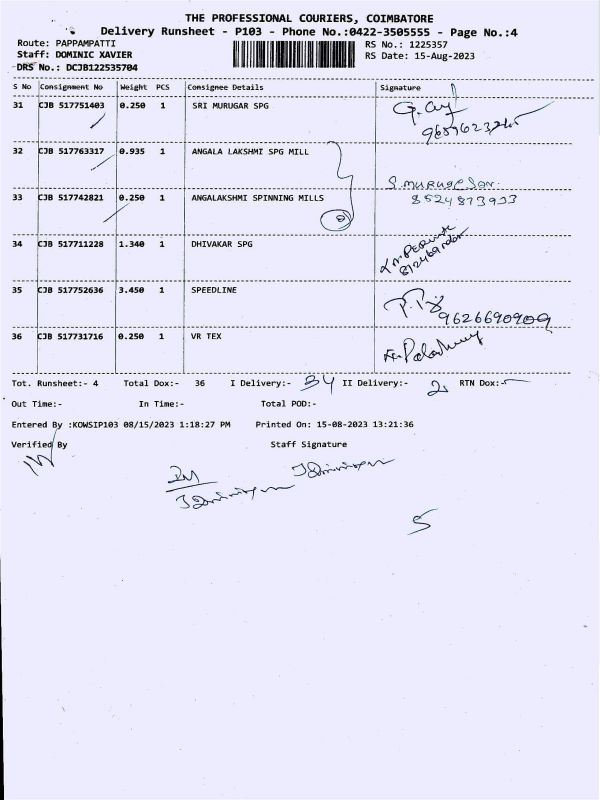 THE PROFESSIONAL COURIERS, COIMBATORE
Delivery Runsheet - P103 - Phone No.:0422-3505555 - Page No.:4
Route: PAPPAMPATTI RS No.: 1225357
Staff: DOMINIC XAVIER RS Date: 15-Aug-2023
DRS No.: DCJB122535704
S No Consignment No Weight PCS Consignee Details Signature
31 CJB 517751403 0.250 1 SRI MURUGAR SPG
32 CJB 517763317 0.935 1 ANGALA LAKSHMI SPG MILL
S. MURUGESAN.
33 CJB 517742821 0.250 1 ANGALAKSHMI SPINNING MILLS 8524873933
34 CJB 517711228 1.340 1 DHIVAKAR SPG
35 CJB 517752636 3.450 1 SPEEDLINE
9626690909
36 CJB 517731716 0.250 1 VR TEX
Tot. Runsheet:- 4 Total Dox:- 36 I Delivery:- 34 II Delivery:- 2 RTN Dox:-
Out Time:- In Time:- Total POD:-
Entered By :KOWSIP103 08/15/2023 1:18:27 PM Printed On: 15-08-2023 13:21:36
Verified By Staff Signature
5